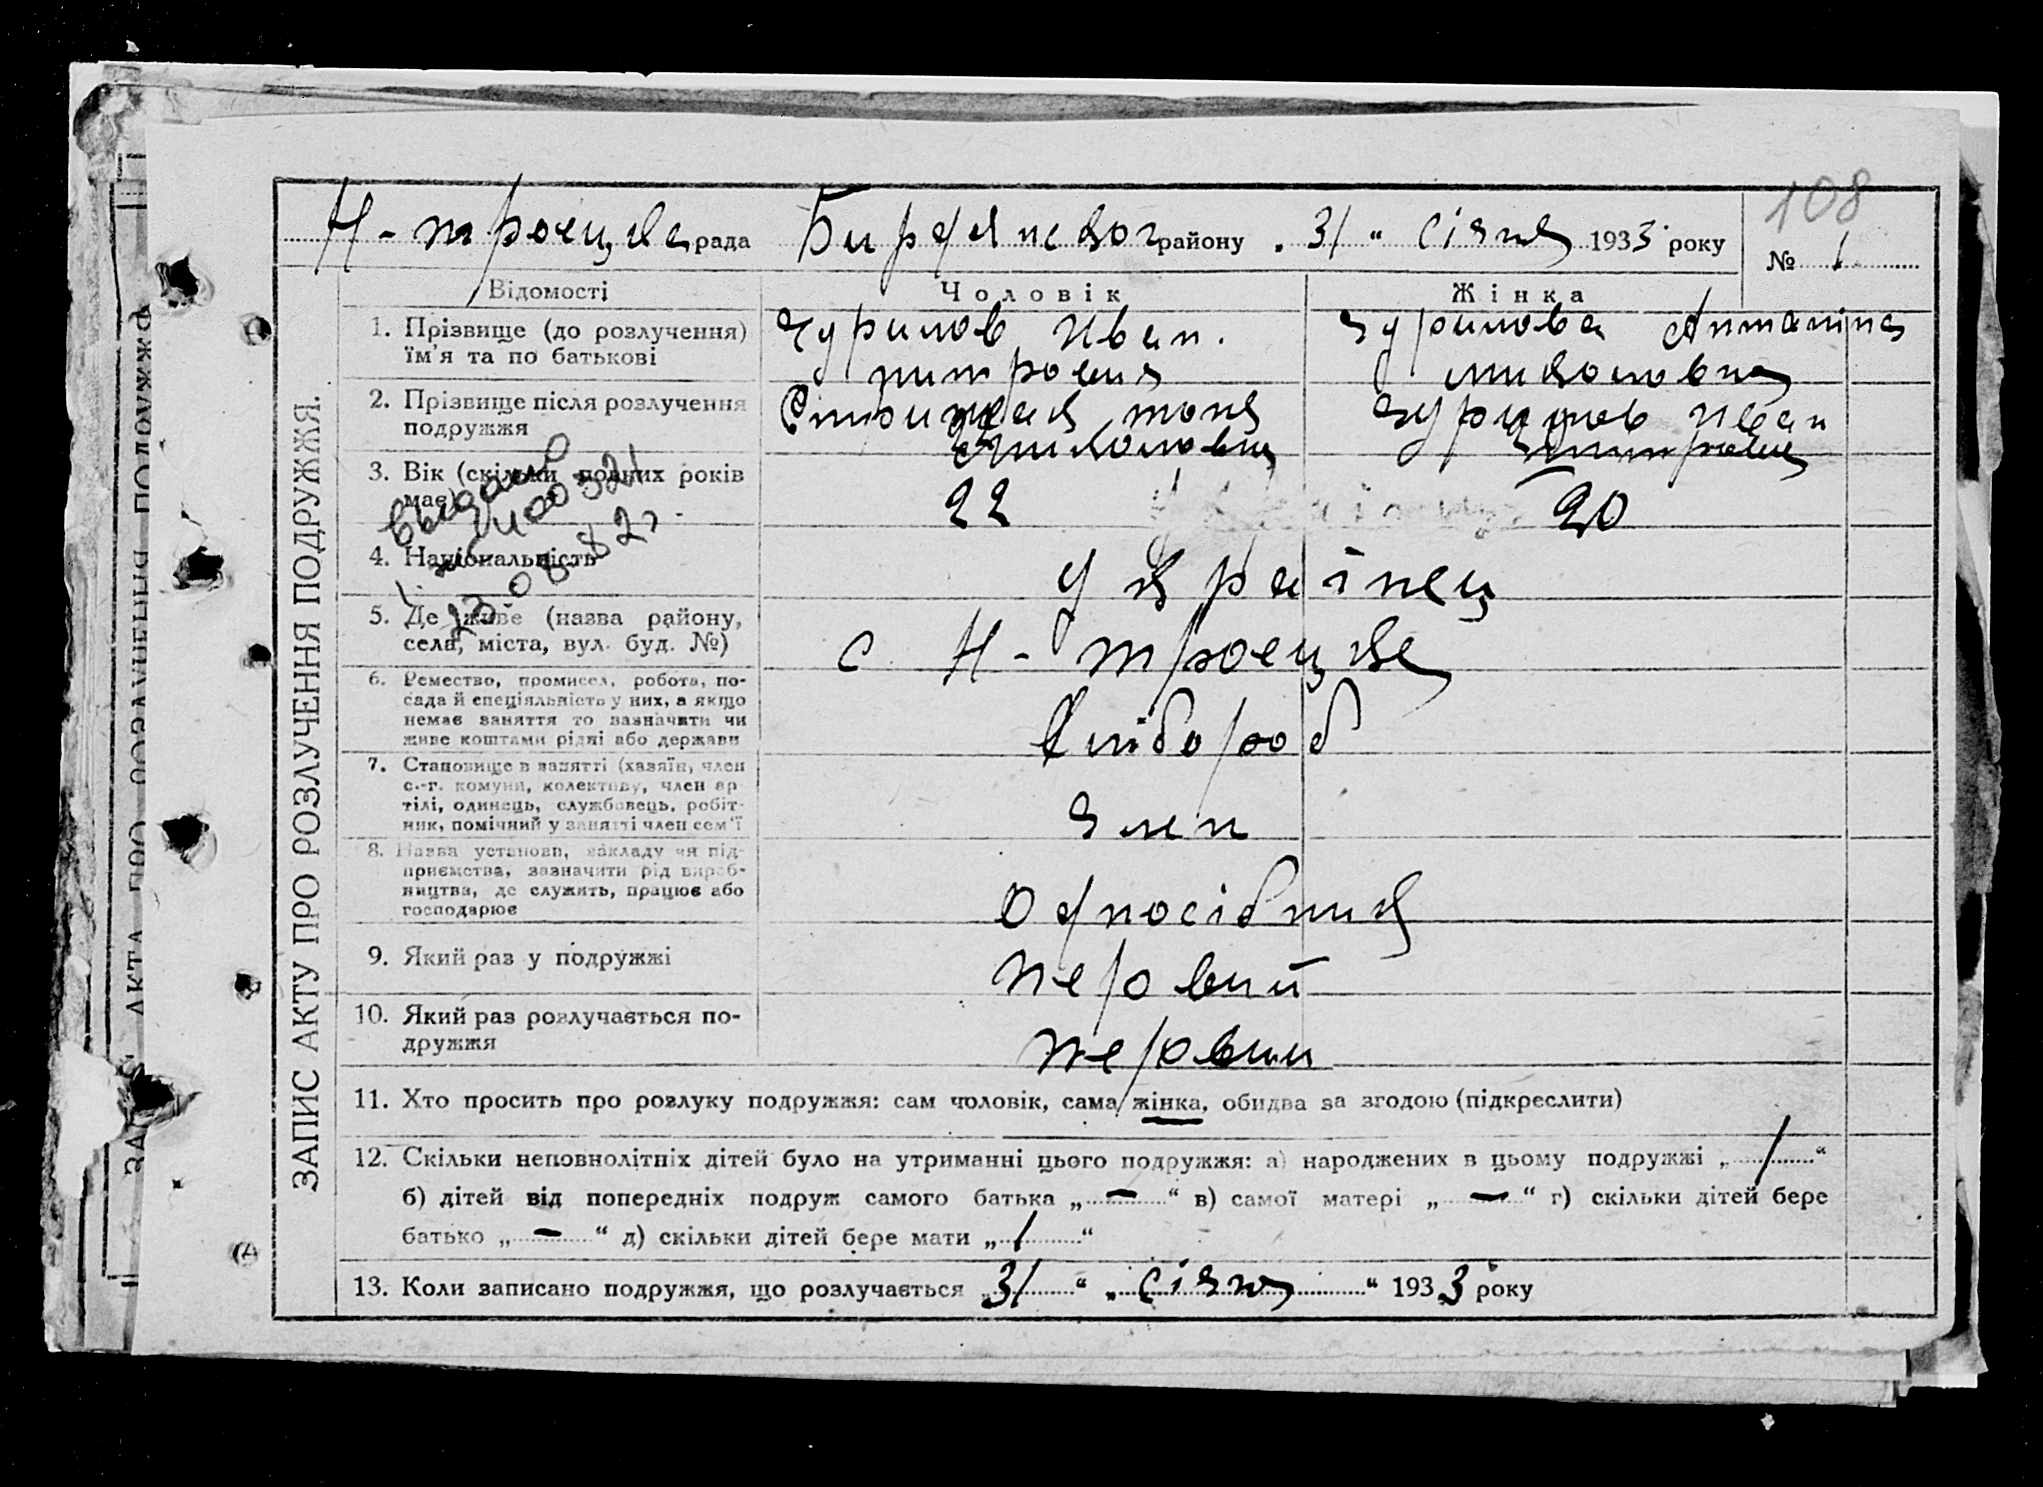 108
Н-троецька рада Бирдянског району „31“ січня 1933 року № 1
ЗАПИС АКТУ ПРО РОЗЛУЧЕННЯ ПОДРУЖЖЯ.
Відомості Чоловік Жінка
1. Прізвище (до розлучення) Чурилов Иван. Чурилова Антаніна
їм'я та по батькові
2. Прізвище після розлучення тоня Чурилов Иван
подружжя
3. Вік (скільки повних років 22 20
має)
4. Національність Українец
5. Де живе (назва району, с Н-троецке
села, міста, вул. буд. №)
6. Ремество, промисел, робота, по-
сада й спеціяльність у них, а якщо
немає заняття то вазначити чи Хліборооб
живе коштами рідні або держави
7. Становище в занятті (хазяїн, член
с.-г. комуни, колективу, член ар-
тілі, одинець, службовець, робіт- Член
ник, помічний у занятті член сем'ї
8. Назва установи, закладу чи під-
приємства, зазначити рід вироб-
ництва, де служить, працює або Односібник
господарює
9. Який раз у подружжі первий
10. Який раз розлучається по-
дружжя первии
11. Хто просить про розлуку подружжя: сам чоловік, сама жінка, обидва за згодою (підкреслити)
12. Скільки неповнолітніх дітей було на утриманні цього подружжя: а) народжених в цьому подружжі „1“
б) дітей від попередніх подруж самого батька „—“ в) самої матері „—“ г) скільки дітей бере
батько „—“ д) скільки дітей бере мати „1“
13. Коли записано подружжя, що розлучається „31“ „січня“ 1933 року